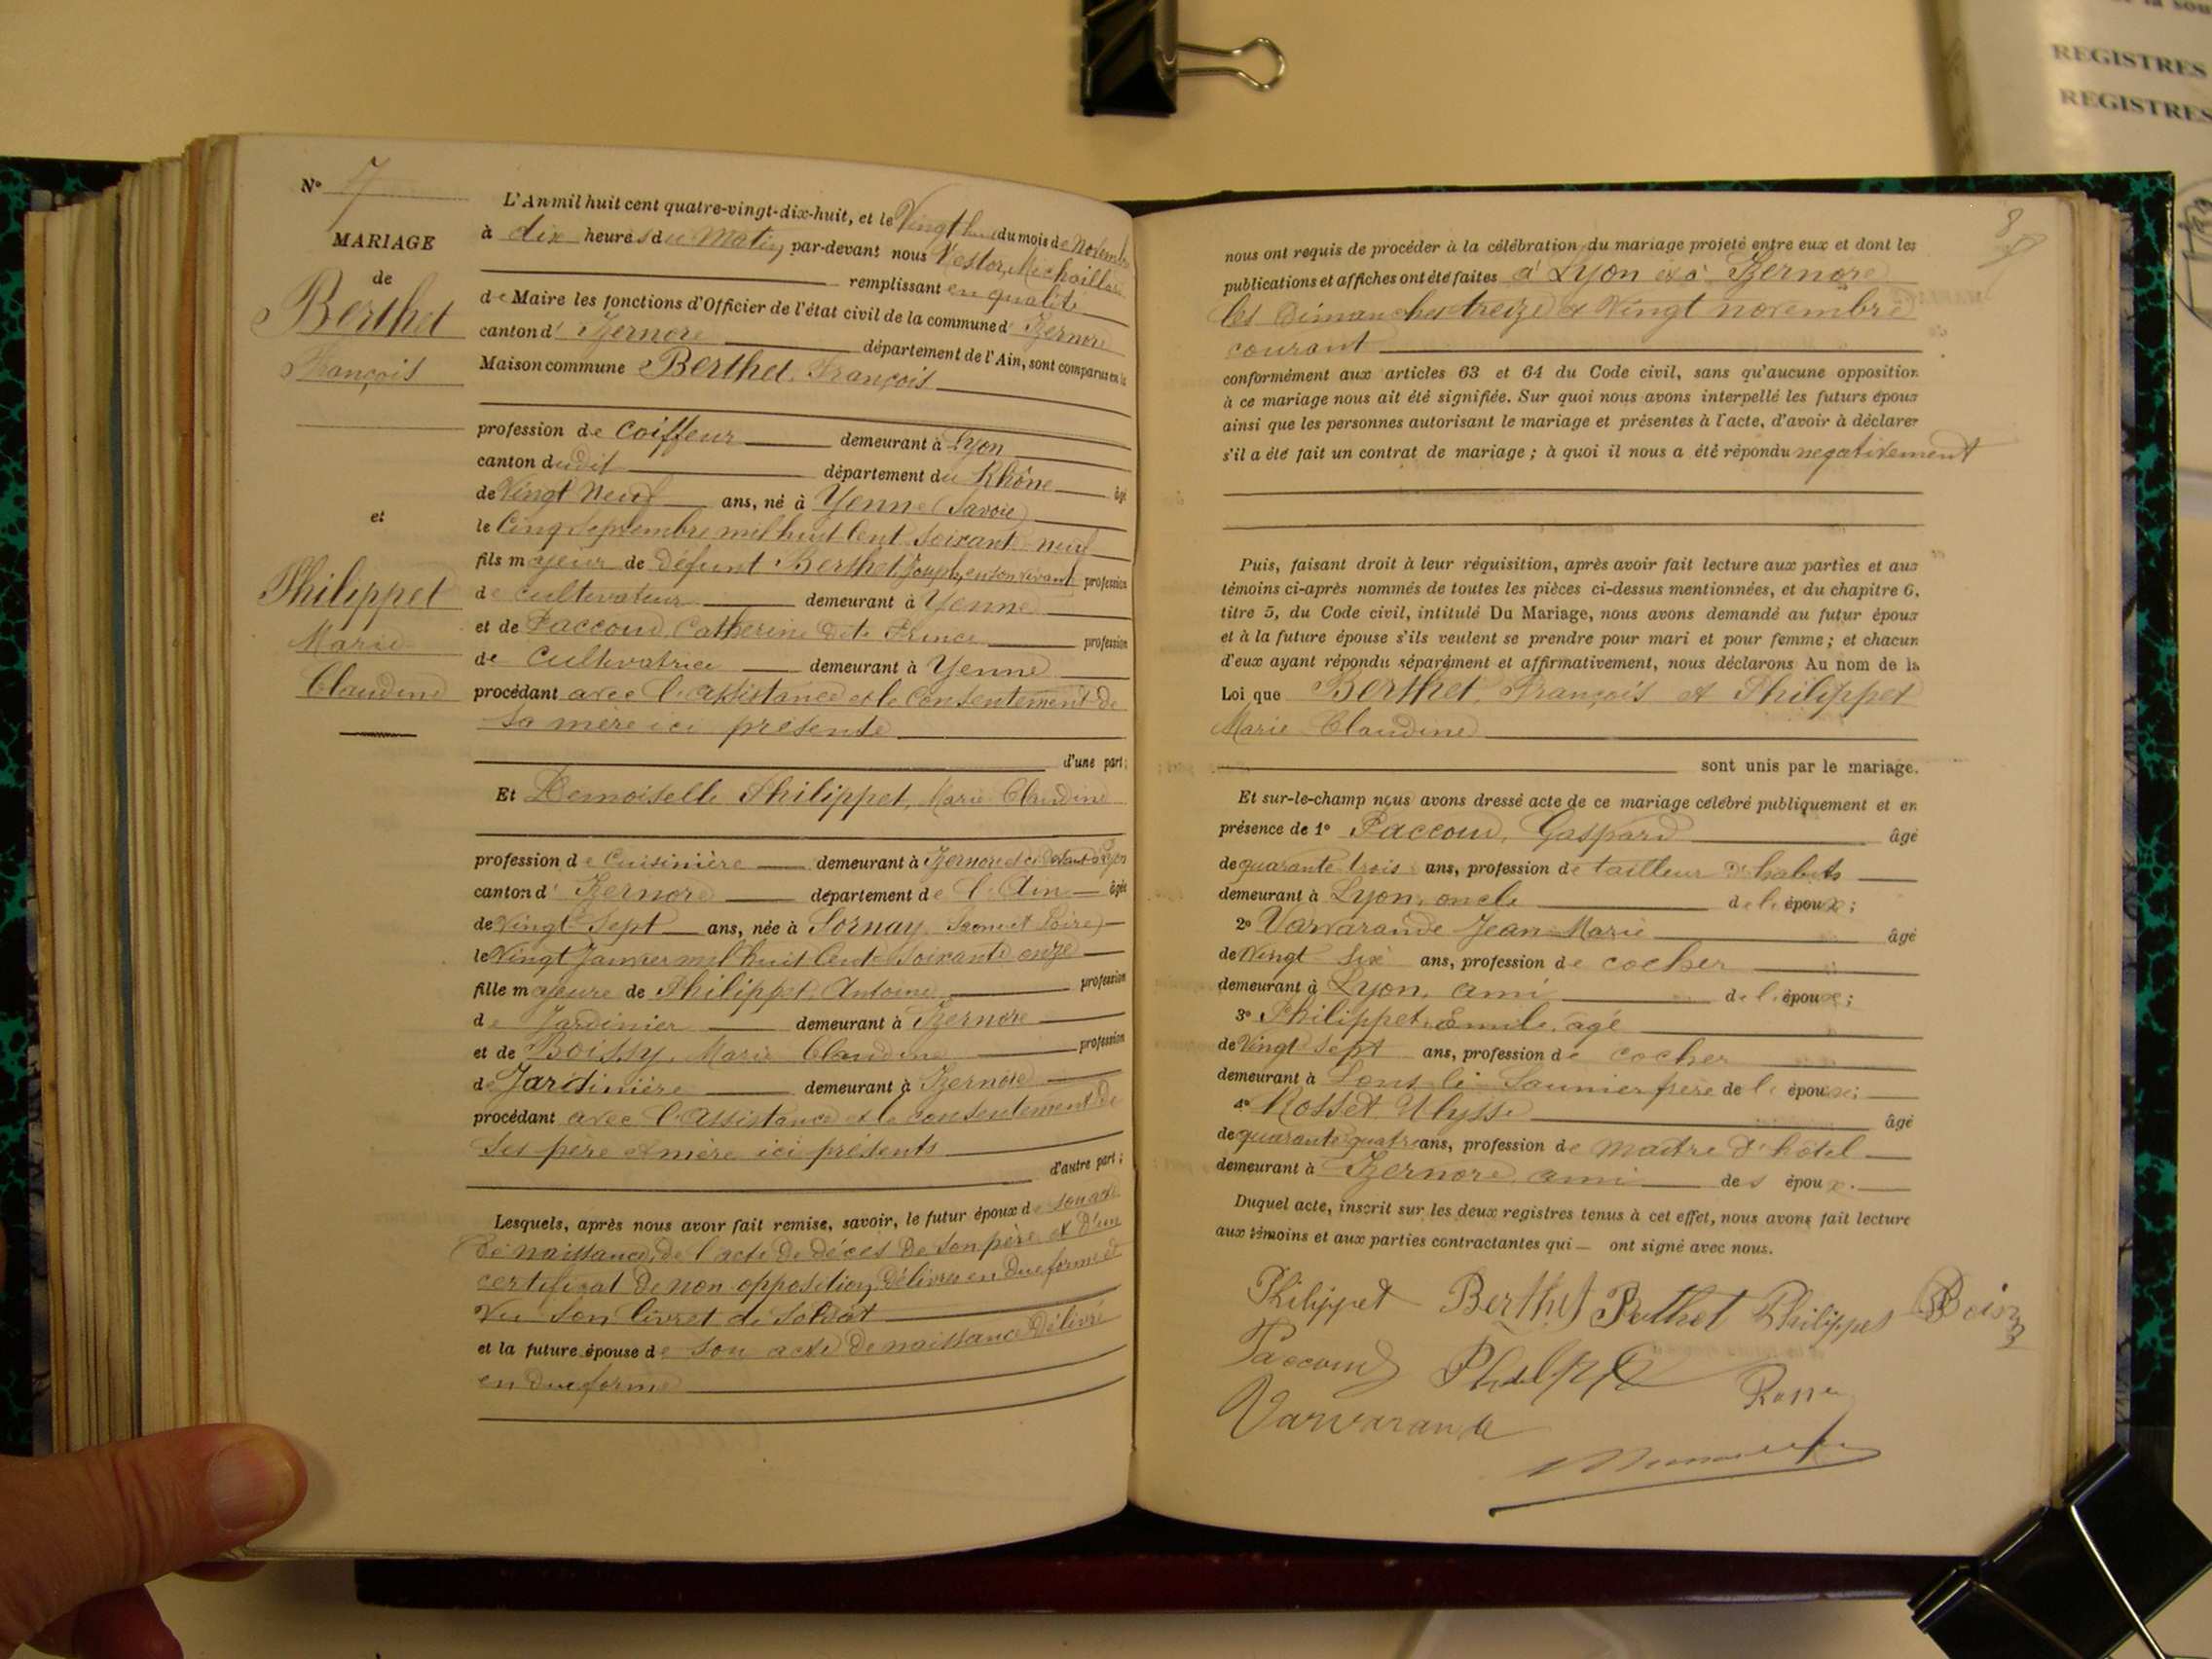 N° 7
MARIAGE
de
Berthet
François
et
Philippet
Marie
Claudine
L'An mil huit cent quatre-vingt-dix-huit, et le Vingt huit du mois de Novembre
à dix heures du Matin par-devant nous Nestor, Michaillard
remplissant en qualité
de Maire les fonctions d'Officier de l'état civil de la commune d' Izernore
canton d' Izernore département de l'Ain, sont comparus en la
Maison commune Berthet, François
profession de Coiffeur demeurant à Lyon
canton dudit département du Rhône âgé
de Vingt Neuf ans, né à Yenne (Savoie)
le Cinq Septembre mil huit Cent Soixante neuf
fils majeur de défunt Berthet Joseph, en son vivant profession
de cultivateur demeurant à Yenne
et de Paccoud, Catherine dite Prince profession
de Cultivatrice demeurant à Yenne
procédant avec l'assistance et le consentement de
Sa mère ici présente
d'une part;
Et Demoiselle Philippet, Marie Claudine
profession de Cuisinière demeurant à Izernore et ci devant à Lyon
canton d' Izernore département de l'Ain âgée
de Vingt Sept ans, née à Sornay (Saône et Loire)
le Vingt Janvier mil huit Cent soixante onze
fille majeure de Philippet, Antoine profession
de Jardinier demeurant à Izernore
et de Boissy, Marie Claudine profession
de Jardinière demeurant à Izernore
procédant avec l'assistance et le consentement de
Ses père et mère ici présents
d'autre part;
Lesquels, après nous avoir fait remise, savoir, le futur époux de son acte
de naissance, de l'acte de décès de son père et d'un
certificat de non opposition, délivrés en due forme et
Vu son livret de Soldat
et la future épouse de son acte de naissance délivré
en due forme
8
nous ont requis de procéder à la célébration du mariage projeté entre eux et dont les
publications et affiches ont été faites à Lyon et à Izernore
les Dimanches treize et Vingt novembre
courant
conformément aux articles 63 et 64 du Code civil, sans qu'aucune opposition
à ce mariage nous ait été signifiée. Sur quoi nous avons interpellé les futurs époux
ainsi que les personnes autorisant le mariage et présentes à l'acte, d'avoir à déclarer
s'il a été fait un contrat de mariage; à quoi il nous a été répondu négativement
Puis, faisant droit à leur réquisition, après avoir fait lecture aux parties et aux
témoins ci-après nommés de toutes les pièces ci-dessus mentionnées, et du chapitre 6,
titre 5, du Code civil, intitulé Du Mariage, nous avons demandé au futur époux
et à la future épouse s'ils veulent se prendre pour mari et pour femme; et chacun
d'eux ayant répondu séparément et affirmativement, nous déclarons Au nom de la
Loi que Berthet, François et Philippet
Marie Claudine
sont unis par le mariage.
Et sur-le-champ nous avons dressé acte de ce mariage célébré publiquement et en
présence de 1° Paccoud, Gaspard âgé
de quarante trois ans, profession de tailleur d'habits
demeurant à Lyon, oncle de l'époux;
2° Varvarande Jean Marie âgé
de Vingt Six ans, profession de cocher
demeurant à Lyon, ami de l'époux;
3° Philippet, Emile, âgé
de Vingt sept ans, profession de cocher
demeurant à Lons le Saunier frère de l'épouse;
4° Rosset, Ulysse âgé
de quarante quatre ans, profession de maître d'hôtel
demeurant à Izernore, ami des époux.
Duquel acte, inscrit sur les deux registres tenus à cet effet, nous avons fait lecture
aux témoins et aux parties contractantes qui — ont signé avec nous.
Philippet Berthet Berthet Philippet Boissy
Paccoud Philippet
Varvarande
REGISTRES
REGISTRES